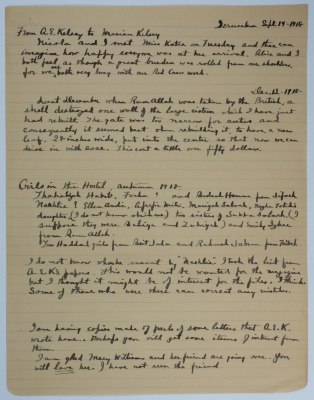 Jerusalem Sept. 19 - 1918
From A.E. Kelsey to Marian Kelsey
Nicola and I met Miss Katie on Tuesday and thee can
imagine how happy everyone was at her arrival. Alice and I
both feel as though a great burden was rolled from our shoulders,
for we both very busy with our Red Cross work.
Dec. 13 - 1918 -
Last December when Ram Allah was taken by the British, a
shell destroyed one wall of the large cistern which I have just
had rebuilt. The gate was too narrow for autos and
consequently it seemed best when rebuilding it, to have a new
leaf, 20 inches wide, put into the center so that now we can
drive in with ease. This cost a little over fifty dollars.
Girls in the Hostel, autumn 1918 -
Habib, and
Ellen Audi, Afeefi Salah,
daughter, (I do not know which one) two sisters of Salah, (I
suppose they were and )
from Ram Allah.
Two Haddad girls from Beit Jala and
I do not know who he meant by I took the list from
A.E.K's papers. This would not be wanted for the magazine
but I thought it might be of interest for the files. I think
some of those who were there can correct any mistakes.
I am having copies made of parts of some letters that A.E.K.
wrote home. Perhaps you will get some items of interest from
them.
I am glad Mary Williams and her friend are going over. You
will love her. I have not seen the friend